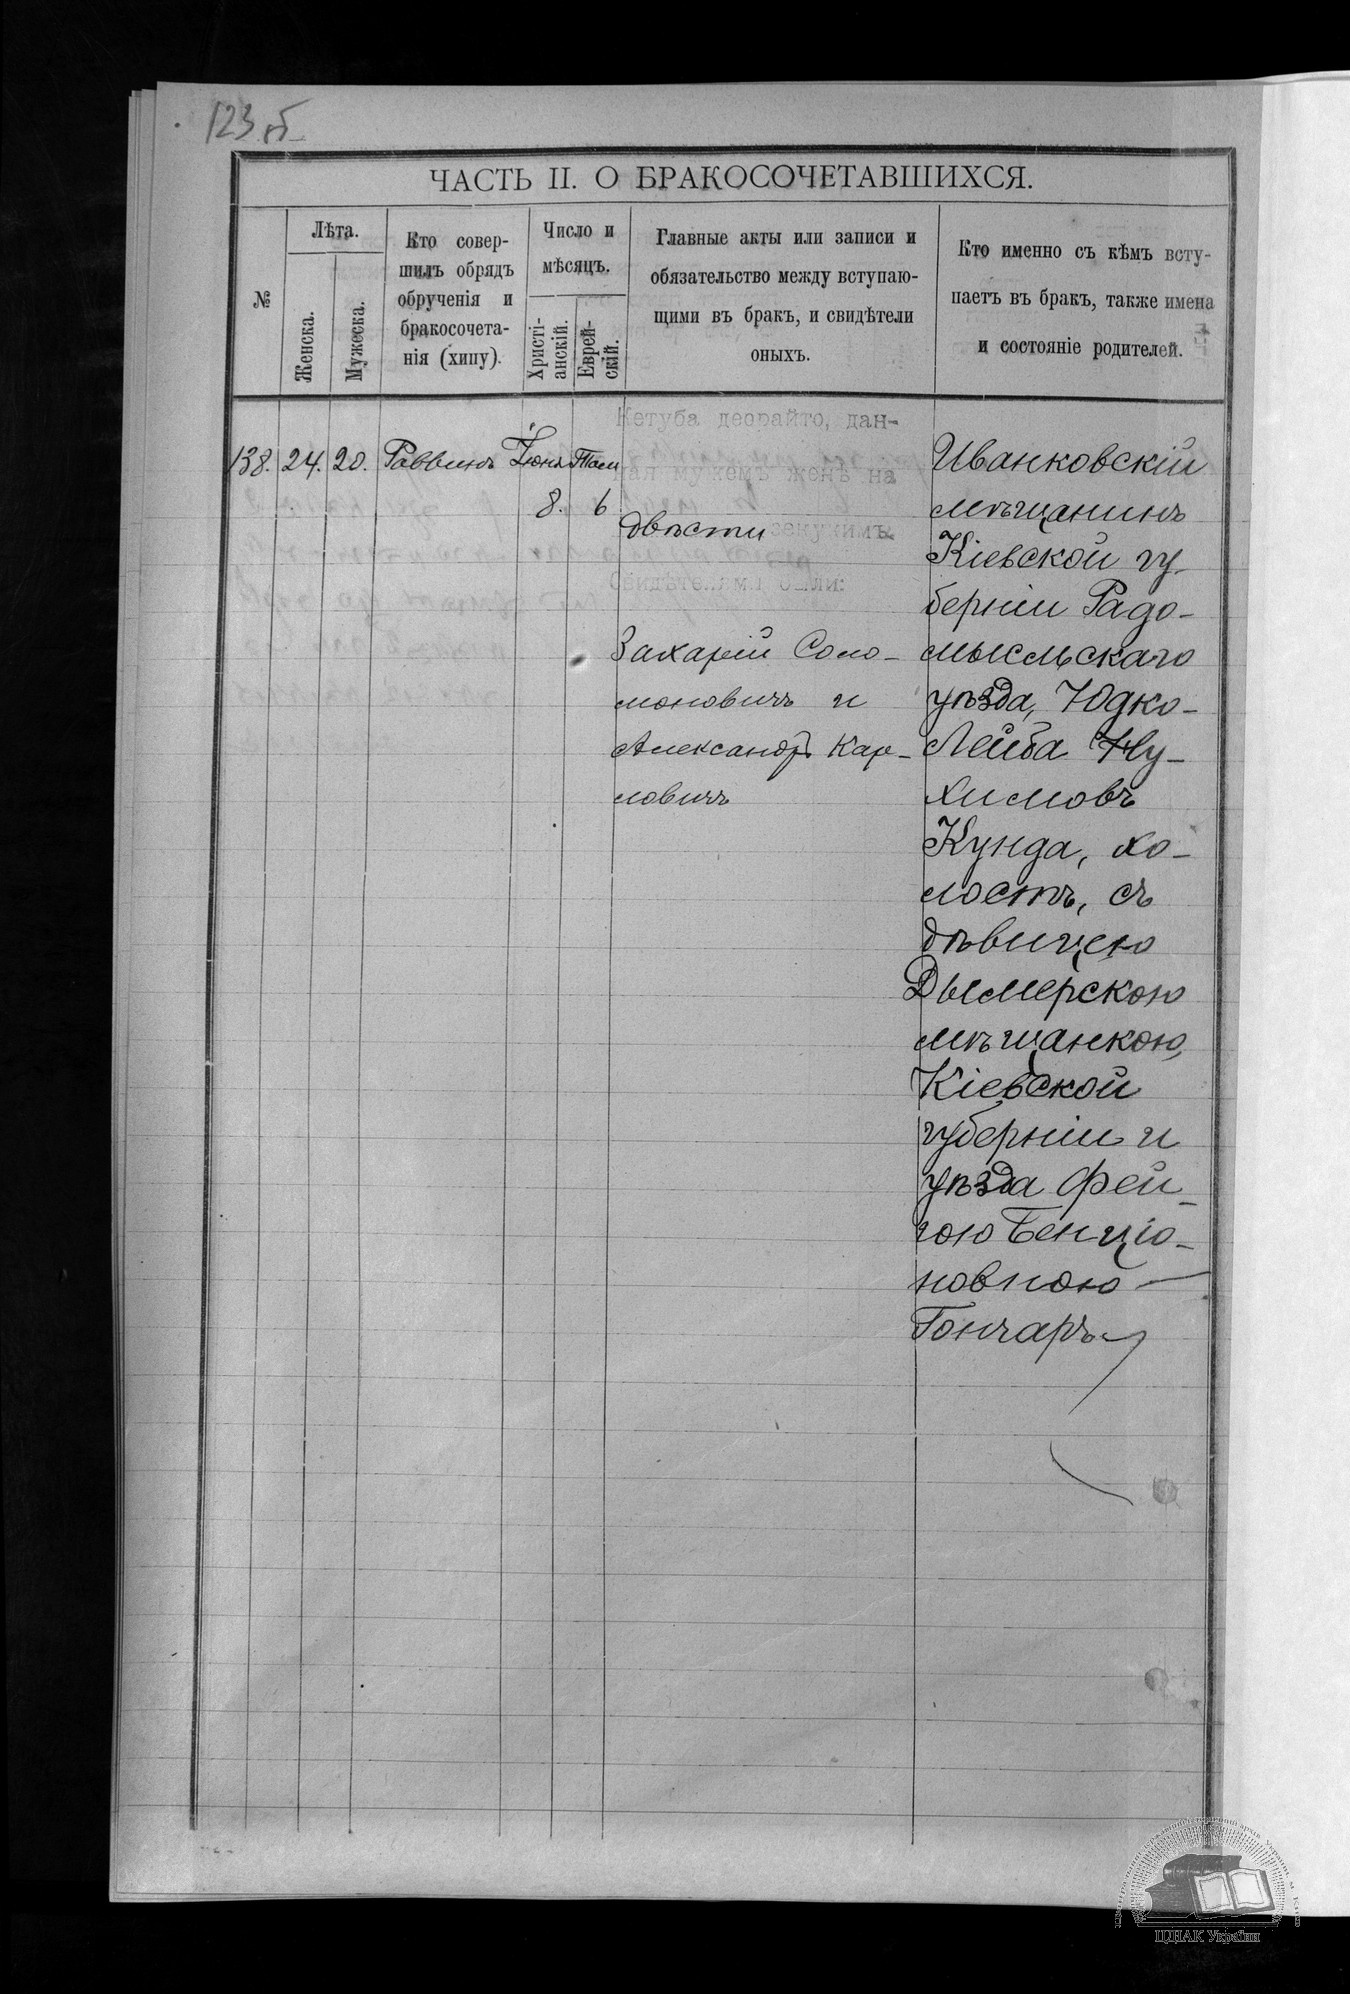 123 об
ЧАСТЬ II. О БРАКОСОЧЕТАВШИХСЯ.
№
Лѣта.
Женска.
Мужеска.
Кто совер-
шилъ обрядъ
обрученія и
бракосочета-
нія (хипу).
Число и
мѣсяцъ.
Христі-
анскій.
Еврей-
скій.
Главные акты или записи и
обязательство между вступаю-
щими въ бракъ, и свидѣтели
оныхъ.
Кто именно съ кѣмъ всту-
паетъ въ бракъ, также имена
и состояніе родителей.
138. 24. 20. Раввинъ Іюня
8. 6
Кетуба деорайто, дан-
ная мужемъ женѣ на
двѣсти зекукимъ
Свидѣтелями были:
Захарій Соло-
моновичъ и
Александръ Кар-
ловичъ
Иванковскій
мѣщанинъ
Кіевской гу-
берніи Радо-
мысльскаго
уѣзда, Юдко-
Лейба Ну-
химовъ
Кунда, хо-
лостъ, съ
дѣвицею
Дымерскою
мѣщанкою,
Кіевской
губерніи и
уѣзда Фей-
гою Бенціо-
новною
Гончаръ
ЦДІАК України